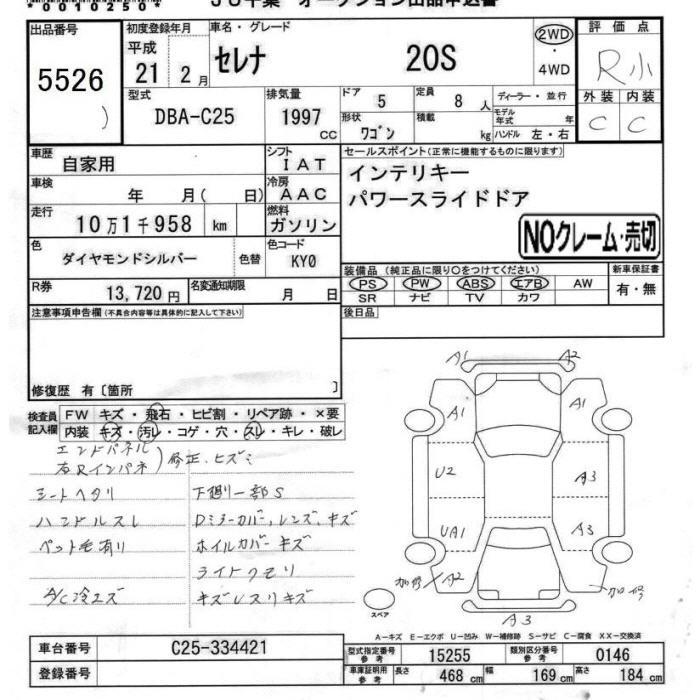 *0010250* JU千葉 オークション出品申込書
出品番号 初度登録年月 車名・グレード 評価点
5526 平成 21 2月 セレナ 20S 2WD・4WD R小
型式 排気量 ドア 5 定員 8人 ディーラー・並行 外装 内装
DBA-C25 1997cc 形状 ワゴン 積載 kg モデル年式 年 ハンドル 左・右 C C
車歴 自家用 シフト IAT セールスポイント(正常に機能するものに限ります)
車検 年 月( 日) 冷房 AAC インテリキー
走行 10万1千958 km 燃料 ガソリン パワースライドドア
NOクレーム・売切
色 ダイヤモンドシルバー 色替 色コード KY0
装備品(純正品に限り○をつけてください) 新車保証書
PS PW ABS エアB AW 有・無
SR ナビ TV カワ
R券 13,720円 名変通知期限 月 日
後日品
注意事項申告欄(不具合内容等は具体的に記入して下さい)
修復歴 有〔箇所 〕
検査員記入欄 FW キズ・飛石・ヒビ割・リペア跡・×要
内装 キズ・汚レ・コゲ・穴・スレ・キレ・破レ
エンドパネル
右Rインパネ)修正、ヒズミ
シートヘタリ 下廻り一部S
ハンドルスレ Dミラーカバー,レンズ、キズ
ペット毛有り ホイルカバーキズ
ライトクモリ
A/C冷エズ キズレスリキズ
A1 A2
A1 A1
U2 A3
UA1 A3
加修/A2 加修
A3
スペア
A-キズ E-エクボ U-凹み W-補修跡 S-サビ C-腐食 XX-交換済
車台番号 C25-334421 型式指定番号 参考 15255 類別区分番号 参考 0146
登録番号 車庫証明用 参考 長さ 468 cm 幅 169 cm 高さ 184 cm